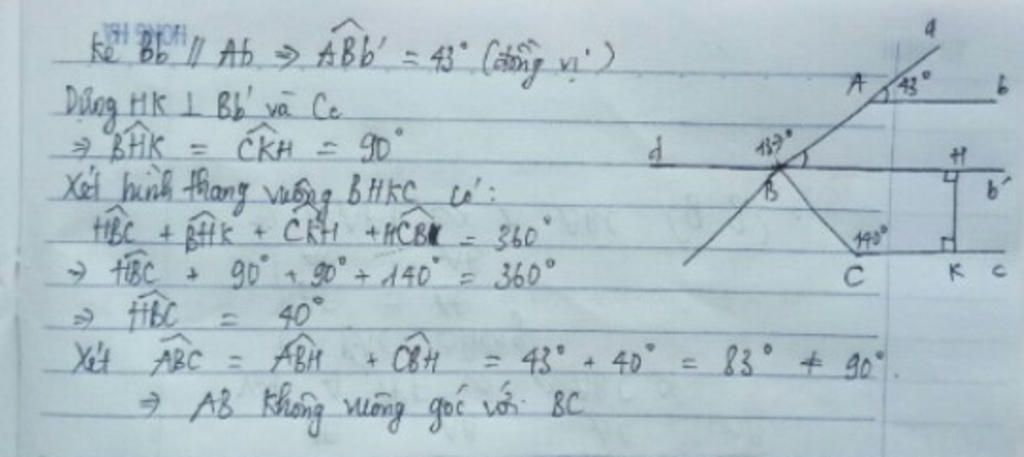 Kẻ Bb' // Ab ⇒ ABb' = 43° (đồng vị)
Dựng HK ⊥ Bb' và Cc
⇒ BHK = CKH = 90°
Xét hình thang vuông BHKC có:
HBC + BHK + CKH + HCB = 360°
⇒ HBC + 90° + 90° + 140° = 360°
⇒ HBC = 40°
Xét ABC = ABH + CBH = 43° + 40° = 83° ≠ 90°.
⇒ AB không vuông góc với BC
a
A 43° b
d 137° H
B b'
140°
C K c